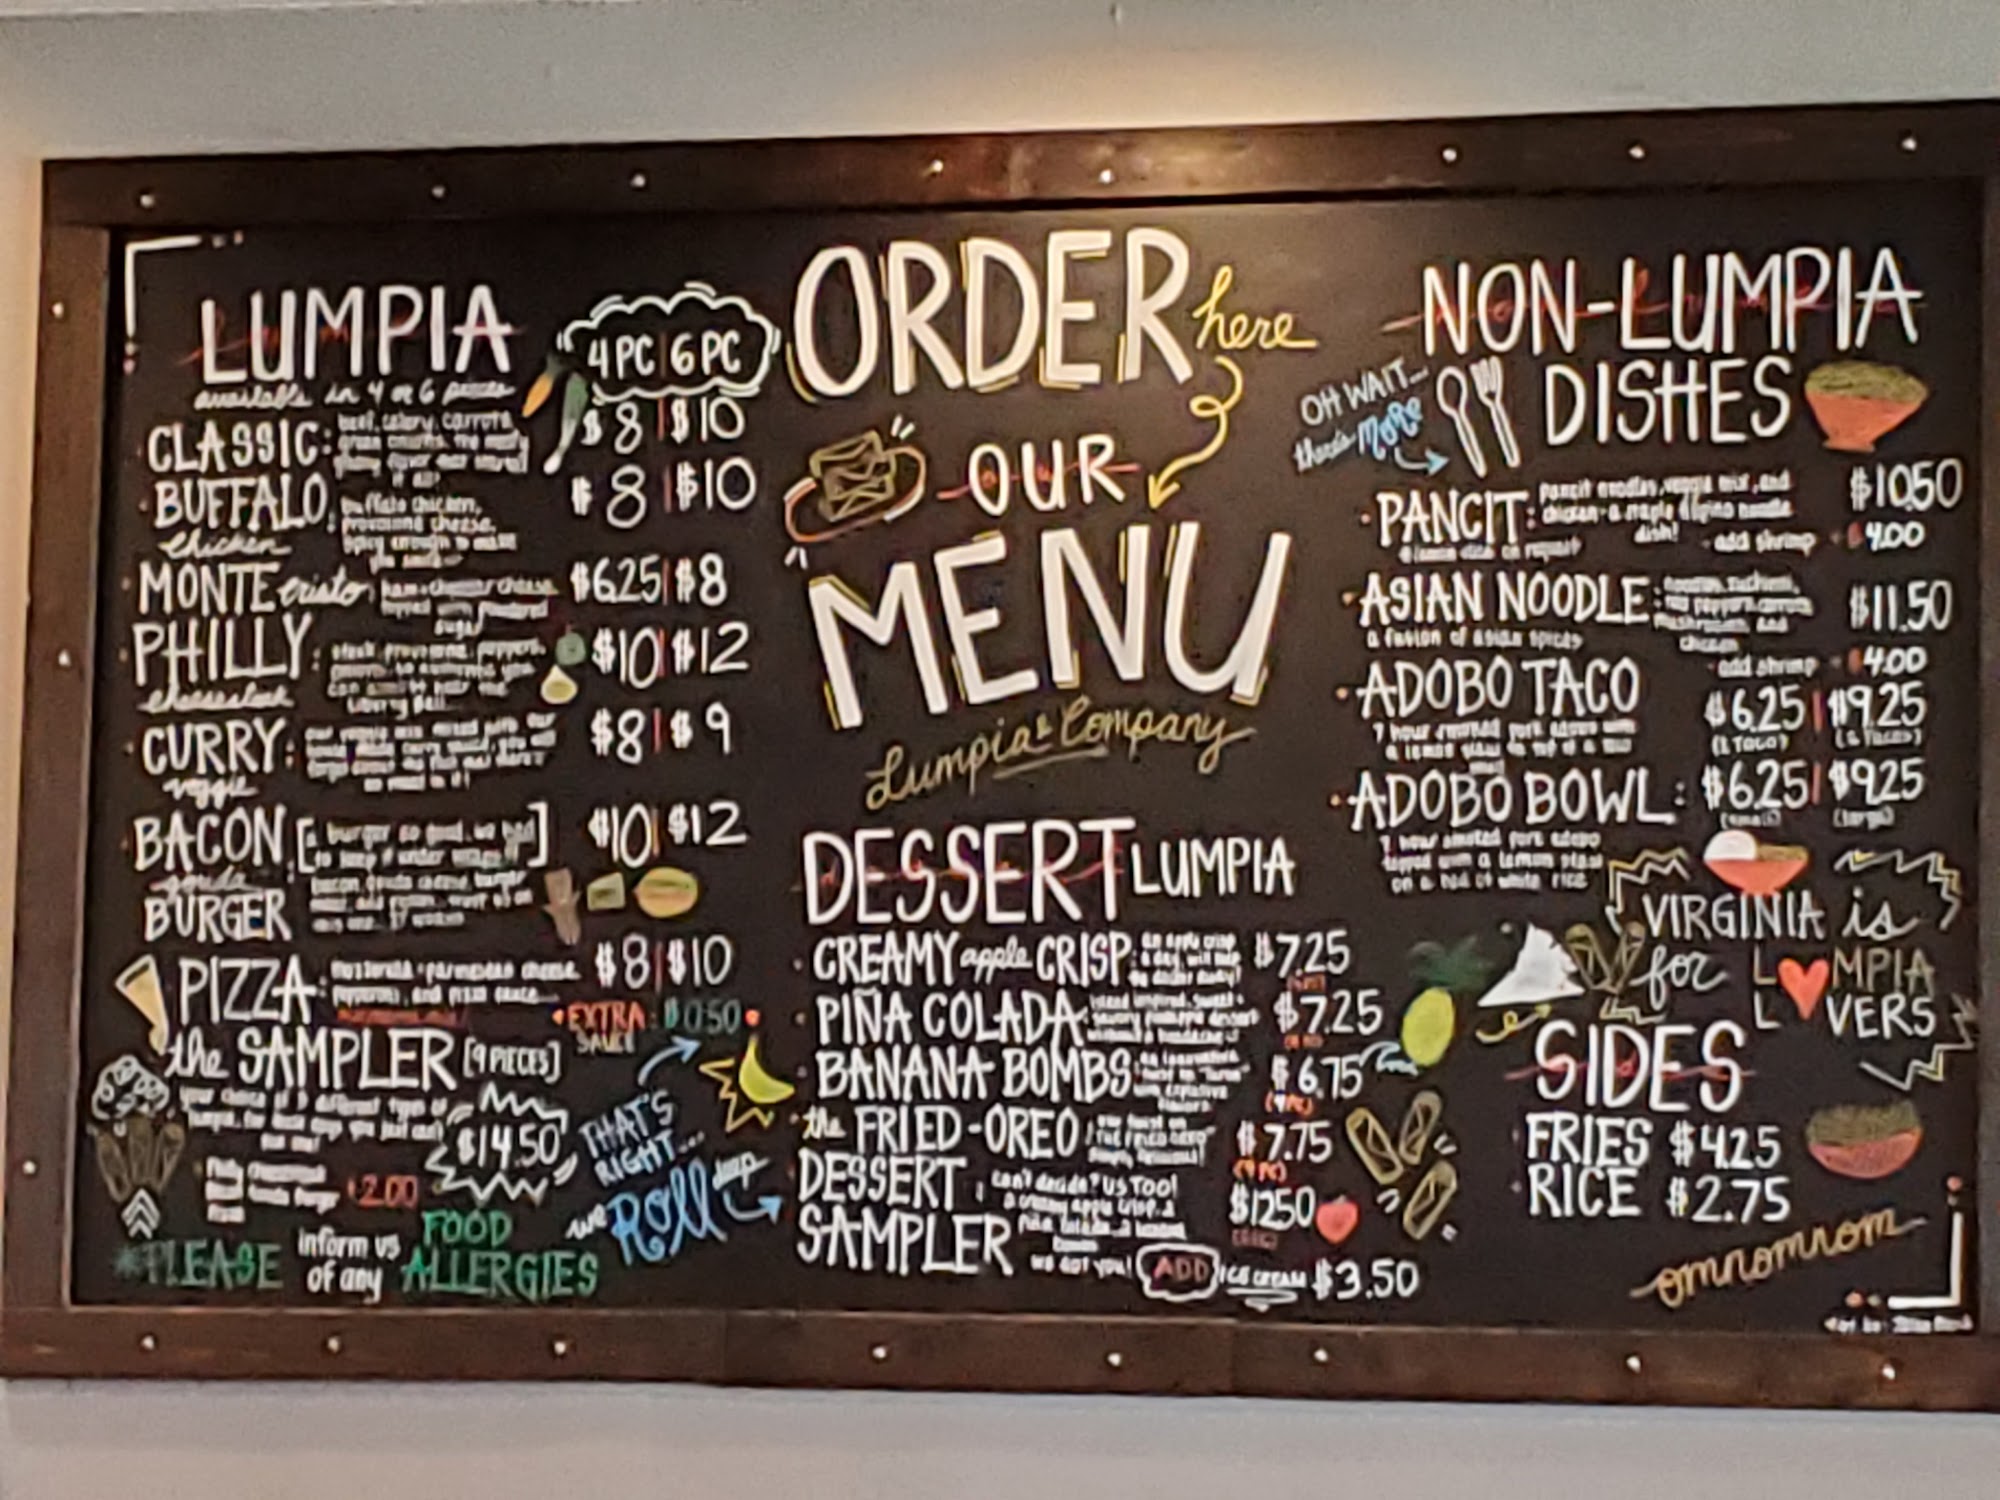 ORDER here
OUR
MENU
Lumpia & Company
LUMPIA
available in 4 or 6 pieces
4 PC | 6 PC
CLASSIC: beef, celery, carrots, $8 | $10
BUFFALO chicken: buffalo chicken, provolone cheese, $8 | $10
spicy enough to make
you smile
MONTE cristo: ham + cheese $6.25 | $8
topped with powdered
sugar
PHILLY cheesesteak: steak, provolone, peppers, $10 | $12
Liberty Bell...
CURRY veggie: our veggie mix mixed with our $8 | $9
BACON gouda BURGER [a burger so good, we had $10 | $12
to keep it under wraps!!]
bacon, gouda cheese, burger
PIZZA: mozzarella + parmesan cheese $8 | $10
pepperoni, and pizza sauce...
EXTRA SAUCE: $0.50
the SAMPLER [9 PIECES]
your choice of 3 different types of
lumpia, for those days you just can't
$14.50
$2.00
THAT'S
RIGHT...
we Roll deep
*PLEASE inform us of any FOOD ALLERGIES
DESSERT LUMPIA
CREAMY apple CRISP: an apple crisp $7.25
a day, will keep
the doctor away!
PIÑA COLADA: island inspired, sweet + $7.25
savory pineapple dessert
BANANA BOMBS: $6.75
(4 PC)
the FRIED-OREO: $7.75
(4 PC)
DESSERT SAMPLER: can't decide? US TOO! $12.50
2 creamy apple crisp, 2
piña colada, 2 banana
bombs
WE GOT YOU!
ADD ICE CREAM $3.50
OH WAIT...
there's MORE
NON-LUMPIA
DISHES
PANCIT: pancit noodles, veggie mix, and $10.50
chicken - a staple filipino noodle
dish!
- add shrimp - $4.00
ASIAN NOODLE: $11.50
red peppers, carrots,
mushrooms, and
chicken
a fusion of asian spices
- add shrimp - $4.00
ADOBO TACO $6.25 | $9.25
(1 TACO) (2 TACOS)
7 hour smoked pork adobo with
a lemon slaw on top of a
ADOBO BOWL: $6.25 | $9.25
(small) (large)
7 hour smoked pork adobo
topped with a lemon slaw
on a bed of white rice
VIRGINIA is
for L♥MPIA
L♥VERS
SIDES
FRIES $4.25
RICE $2.75
omnomnom